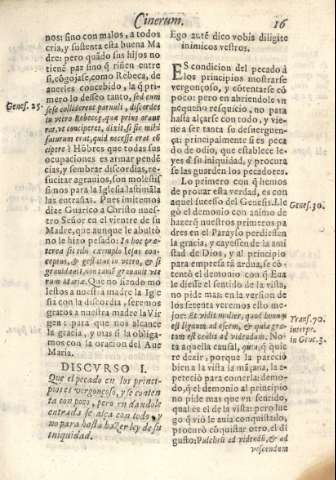 Cinerum.
16
nos: sino con malos, a todos
cria, y sustenta esta buena Ma
dre: pero quãdo sus hijos no
tienê paz sino q̃ riñen entre
si, cõgojase, como Rebeca, de
auerlos concebido, la q̃ pri
mero lo desseo tanto, sed eum
Genes. 25.
sese colliderent paruuli, dixerũt
in vtero Rebecę, que prius oraue
rat, vt conciperet, dixit, si sic mihi
futurum erat, quid necesse erat cõ
cipere? Hõbres que todas sus
ocupaciones es armar pendẽ
cias, y sembrar discordias, re-
sucitar agrauios, son molestis
simos para la Iglesia lastimãla
las entrañas. Pues imitemos
dize Guarico à Christo nues-
tro Señor en el vientre de su
Madre, que aunque le abultò
no le hizo pesado: In hoc præ-
terea sit tibi exemplo Iesus con-
ceptus, & gestatus in vtero, & sic
grauidauit, non tamẽ grauauit vte
rum Mariæ. Que no siendo mo
lestos a nuestra madre la Igle
sia con la discordia, seremos
gratos a nuestra madre la Vir
gen: para que nos alcance
la gracia, y mas si la obliga-
mos con la oracion del Aue
Maria.
DISCVRSO I.
Que el pecado en los princi-
pios es vergonçoso, y se conten
ta con poco, pero en dandole
entrada se alça con todo, y
no para hasta hazer ley de su
iniquidad.
Ego autẽ dico vobis diligite
inimicos vestros.
ES condicion del pecado à
los principios mostrarse
vergonçoso, y cótentarse cõ
poco: pero en abriendole vn
pequeño resquicio, no para
hasta alçarse con todo, y vie-
ne a ser tanta su desuerguen-
ça; principalmente si es peca
do de odio, que establece le-
yes d̃ su iniquidad, y procura
se las guarden los pecadores.
Lo primero con q̃ hemos
de prouar esta verdad, es con
aquel sucesso del Genesis. Lle
Genes. 30.
gò el demonio con animo de
hazer q̃ nuestros primeros pa
dres en el Parayso perdiessen
la gracia, y cayessen de la ami
stad de Dios, y al principio
para empresa tã ardua, se cõ-
tentò el demonio con q̃ Eua
le diesse el sentido de la vista,
no pide mas: en la version de
los setenta veremos esto me-
jor: Et vidit mulier, quod bonum
est lignum ad escam, & quia gra-
Transl. 70.
tum est oculis ad videndum. No-
interp.
in Gene. 3.
ta aquella causal, quia, q̃ quie
re dezir, porque la pareciò
bien a la vista la mãçana, la a-
pareciò para comerla: demo-
do, q̃ el demonio al principio
no pide mas que vn sentido,
qual es el de la vista: pero lue
go q̃ viò le auia conquistado,
procurò cõquistar otro, el dl
gusto: Pulchrũ ad vidẽdũ, & ad
vescendum